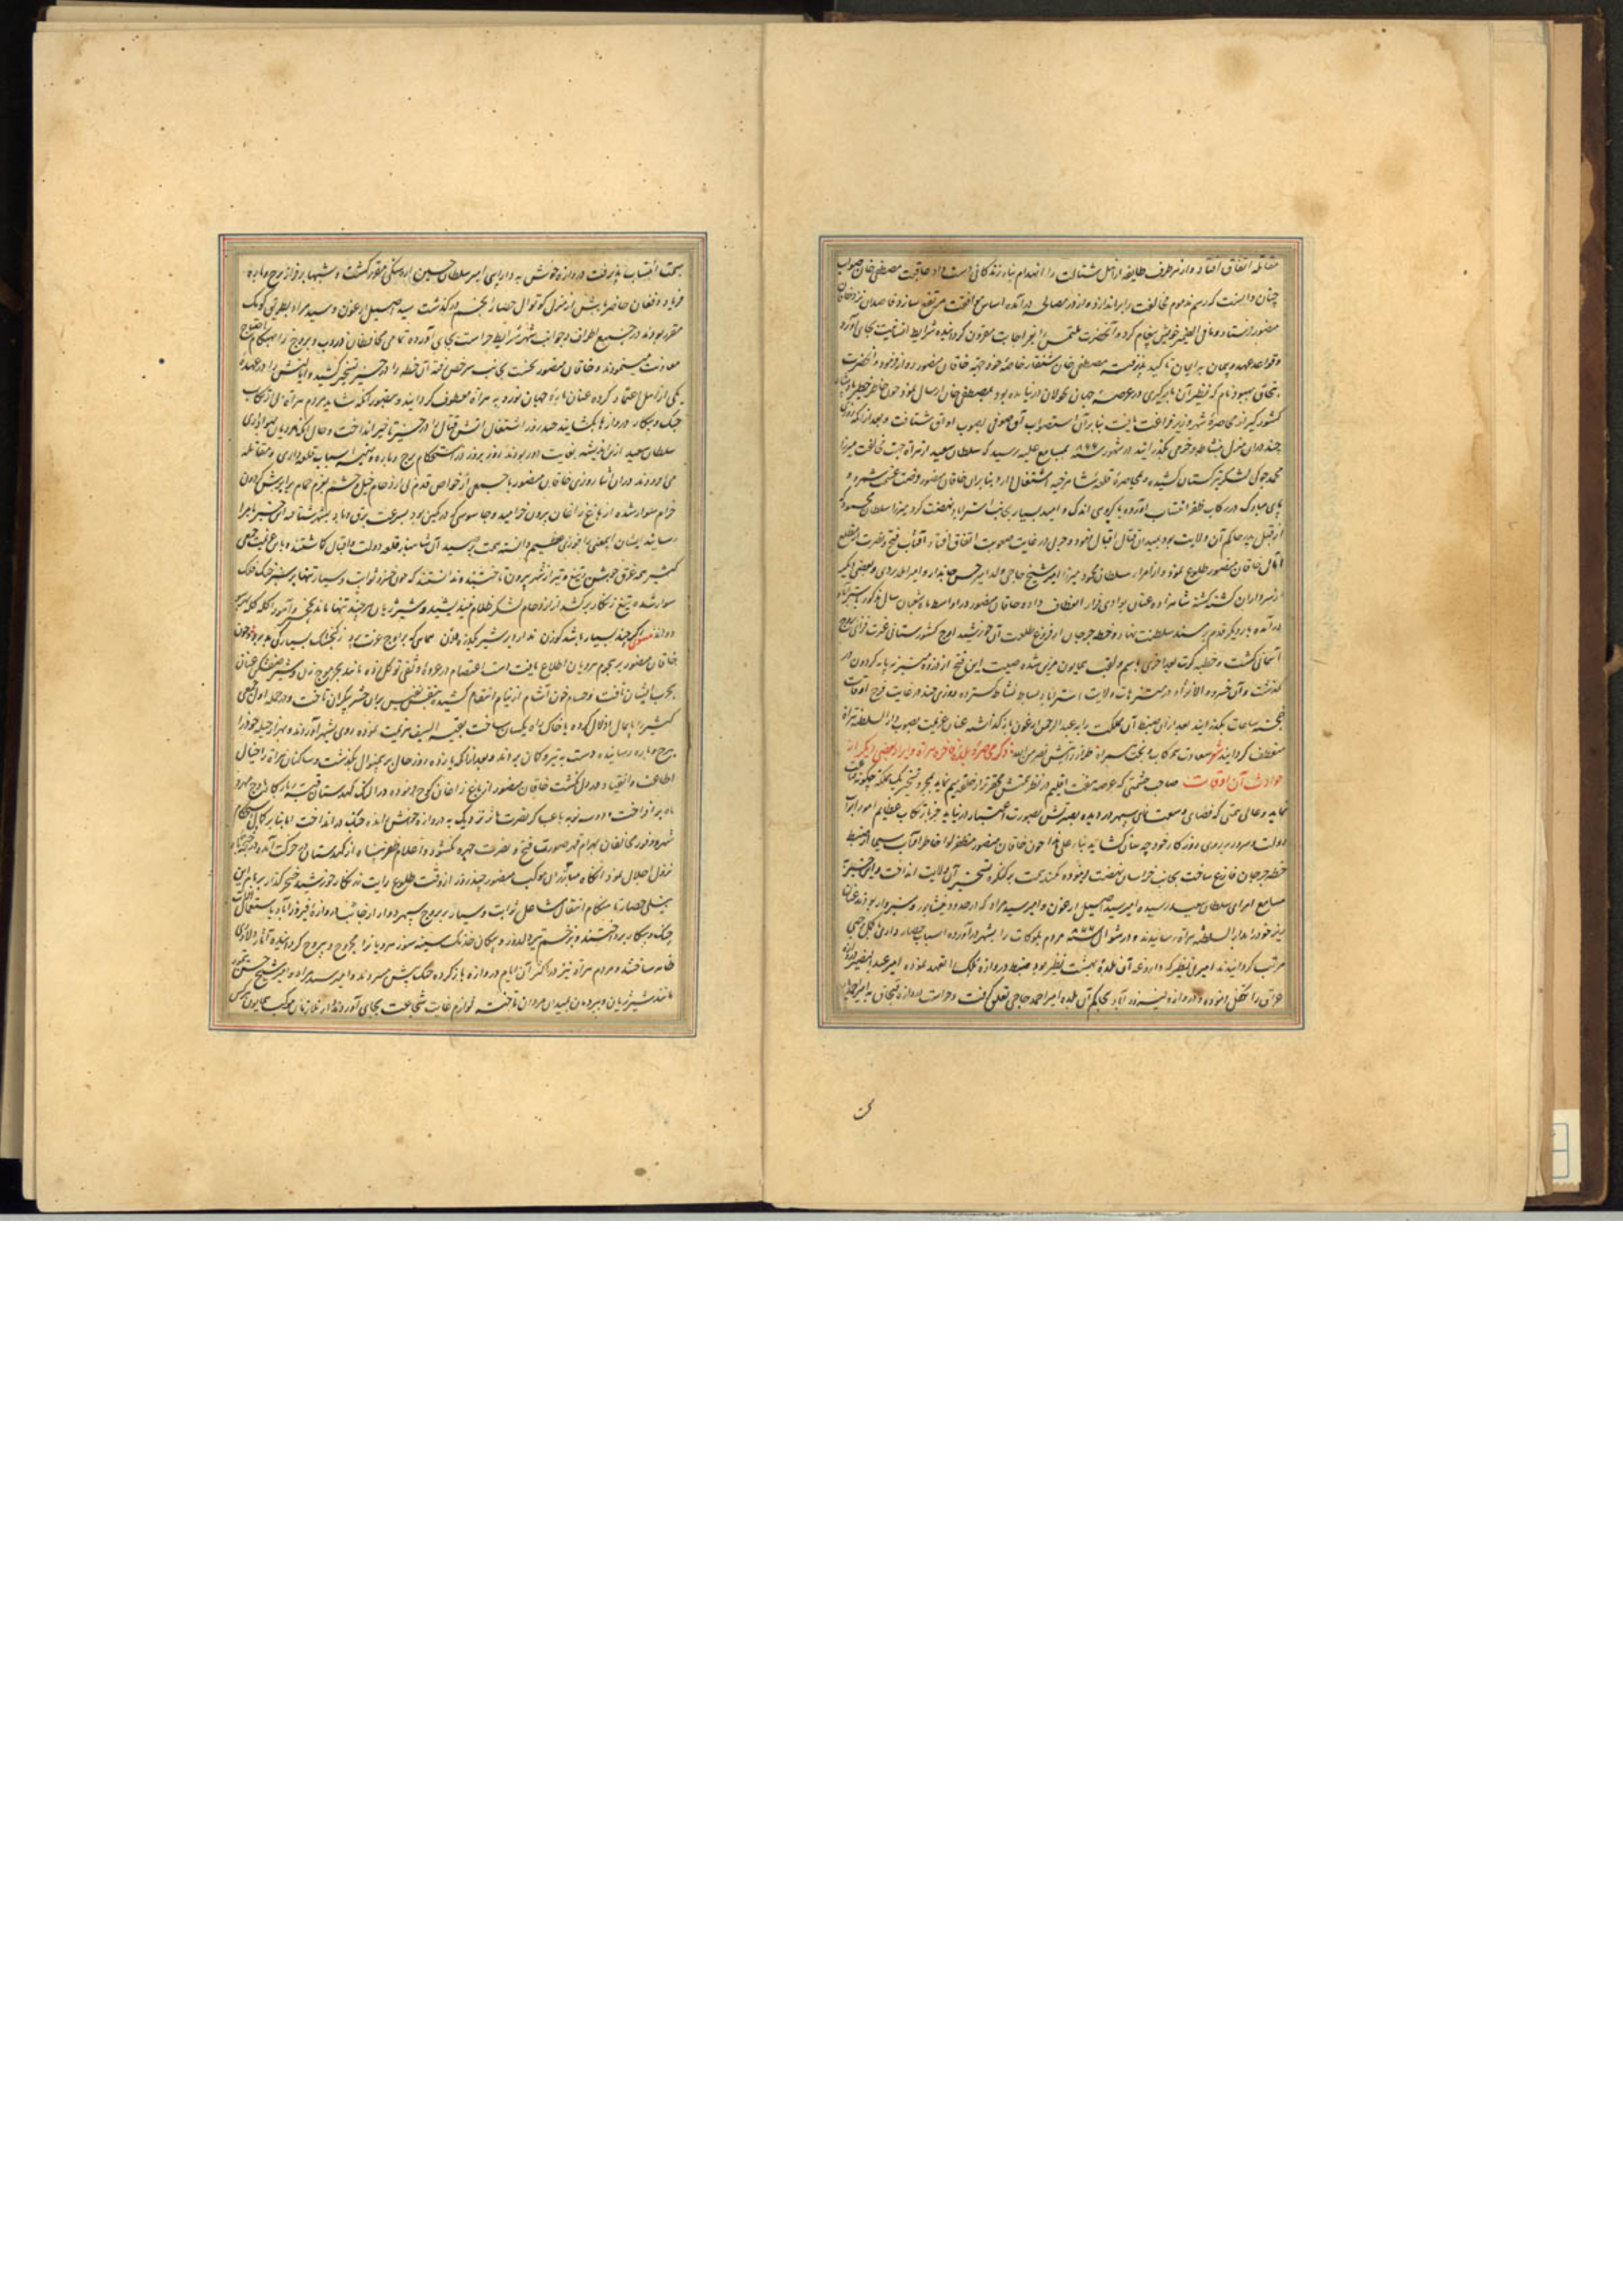 مقاتله اتفاق افتاد و از هر طرف طایفه از اهل شتالت را انهدام بناء زندگانی دست داد عاقبت مصطفی خان صواب
چنان دانست که رسم مذموم مخالفت را براندازد و از در مصالحه درآمده اساس موافقت مرتفع سازد قاصدان نزد خاقان
منصور فرستاد و مافی الضمیر خویش پیغام کرد و آنحضرت ملتمس را بعز اجابت مقرون گردانیده شرایط انسانیت بجای آورد
و قواعد عهد و پیمان به ایمان تاکید پذیرفت مصطفی خان
کشورگیر از محاصره شهر وزیر فراغت یافت بنابر آن استصواب آق صوفی بصوب اواق شتافت و بعد از آنکه روزی
چند در آن منزل بنشاط و خرمی بگذرانید در شهور سنه بمسامع علیه رسید که سلطان سعید از هراة بجهت مخالفت میرزا
محمد جوکی لشکر بترکستان کشیده و بمحاصره قلعه شاهرخیه اشتغال دارد بنابر آن خاقان منصور فرصت غنیمت شمرده
پای مبارک در رکاب ظفر انتساب آورده با گروهی اندک و امید بسیار بجانب استراباد نهضت کرد میرزا سلطان محمود که
از قبل پدر حاکم آن ولایت بود بمیدان قتال اقبال نمود و حربی در غایت صعوبت اتفاق افتاد آفتاب فتح و نصرت از مطلع
آمال خاقان منصور طلوع نمود و از امراء سلطان محمود میرزا امیر شیخ حاجی ولد امیر حسن جاندار و امیر الله بردی و بعضی دیگر
از سرداران کشته گشته شاهزاده عنان بوادی فرار انعطاف داده خاقان منصور در اواسط ماه شعبان سال مذکور باستراباد
درآمده بار دیگر قدم بر مسند سلطنت نهاد و خطه جرجان از فروغ طلعت آن خورشید اوج کشورستانی غیرت فزای بروج
آسمانی گشت و خطبه کرت بعد اخری باسم و لقب همایون مزین شده صیت این فتح از ذروه سپهر نه پایه گردون در
گذشت و آن خسرو والانژاد در مستنزهات ولایت استراباد بساط نشاط گسترده روزی چند در غایت فرح اوقات
خجسته ساعات بگذرانید بعد از آن ضبط آن مملکت را به عبدالرحمن ارغون بازگذاشته عنان عزیمت بصوب دارالسلطنه هراة
منعطف گردانید شعر سعادت همرکاب و بخت همراه طراز رایتش نصر من الله ذکر محاصره بلده فاخره هراة و ایراد بعضی دیگر از
حوادث آن اوقات صاحب حشمتی که عرصه هفت اقلیم در نظر همتش محقرتر از حلقه میم نماید بمجرد تسخیر یک مملکت چگونه قناعت
نماید و عالی همتی که فضای وسعت نمای سپهر در دیده بصیرتش بصورت اعتبار درنیاید جز بارتکاب عظایم امور ابواب
دولت و سرور بر روی روزگار خود چه سان گشاید بناء علی هذا چون خاقان منصور مظفر لوا خاطر آفتاب سیما از ضبط
خطه جرجان فارغ ساخت بجانب خراسان نهضت فرموده کمند همت بر کنگره تسخیر آن ولایت انداخت و این خبر
بمسامع امرای سلطان سعید رسیده امیر سید اصیل ارغون و امیر سید مراد که در حدود نیشابور و سبزوار بودند عنان
ریز خود را بدارالسلطنه هراة رسانیدند و در شوال سنه مردم بلوکات را بشهر درآورده اسباب حصارداری بکلی وجهی
مرتب گردانیدند امیر علی نظر که داروغه آن بلده بهشت نظیر بود ضبط دروازه ملک را تعهد نموده امیر عبدالنصیر دروازه
عراق را تکفل نموده و دروازه فیروزآباد بحاکم آن بلده امیر احمد حاجی تعلق گرفت و حراست دروازه قبچاق به
سمت انتساب پذیرفت دروازه خوش به دارایی امیر سلطان حسین ارهنگی مقرر گشت و شبها بر فراز برج و باره
فریاد و فغان حاضر باش از منزل کوتوال حصار پنجم درگذشت سید اصیل ارغون و سید مراد بطریق کومک
مقرر بودند در جمیع اطراف و جوانب شهر شرایط حراست بجای آورده تمامی محافظان دروب و بروج را هنگام احتیاج
معاونت مینمودند و خاقان منصور نخست بجانب سرخس رفته آن خطه را در حیز تسخیر کشید و ایالتش را در عهده
یکی از اهل اعتماد کرده عنان باره جهان نورد به هراة معطوف گردانید و بتصور آنکه شاید مردم هراة بی ارتکاب
جنگ و پیکار دروازها بگشایند چند روز اشتعال آتش قتال را در حیز تاخیر انداخت و حال آنکه هرویان بهواداری
سلطان سعید ازین اندیشه بغایت دور بودند روز بروز در استحکام برج و باره و تهیه اسباب قلعه داری و مقاتله
می افزودند در آن اثنا روزی خاقان منصور با جمعی از خواص قدم از ازدحام خیل و حشم بعزم حمام بر ابرش گردون
خرام سوار شده از باغ زاغان بیرون خرامید و جاسوسی که در کمین بود بسرعت برق و باد بشهر شتافته این خبر به امرا
رسانید ایشان این معنی را فوزی عظیم دانسته
کثیر همه غرق جوشن و تیغ و تیر از شهر بیرون تاختند و ندانستند که چون خسرو ثوابت و سیار تنها بر سبز خنگ فلک
سوار شده تیغ زرنگار برکشد از ازدحام لشکر ظلام نیندیشد و شیر ژیان هر چند تنها ماند بچنگ و آهو را گله گله برهم
دراند مثنوی گر چند بسیار باشد گوزن ندارد بر شیر یکذره وزن همایی که بر اوج عزت پرد ز گنجشک بسیار کی بد برد چون
خاقان منصور بر هجوم هرویان اطلاع یافت دست اعتصام در عروه وثقی توکل زده مانند بحر موج زن و شیر صف شکن عنان
بحرب ایشان تافت و حسام خون آشام از نیام انتقام کشیده بنفس نفیس بر آن حشر بیکران تاخت و در حمله اول جمعی
کثیر را پایمال اذلال کرده با خاک راه یکسان ساخت بقیة السیف هزیمت نموده روی بشهر آوردند و بهزار حیله خود را
ببرج و باره رسانیده دست به تیر و کمان بردند و بعد از آنکه یازده روز حال بر همین منوال بگذشت و ساکنان هراة را خیال
اطاعت و انقیاد در دل نگشت خاقان منصور از باغ زاغان کوچ فرموده در النگ کهدستان قبه بارگاه باوج مهر و
ماه برافراخت و دو سه نوبه با عساکر نصرت مآثر نزدیک به دروازه خوش رانده جنگ درانداخت اما بنابر کمال استحکام
شهر و وفور مخالفان بهرام قهر صورت فتح و نصرت چهره نگشود و اعلام ظفر پناه از کهدستان در حرکت آمده در
نزول اجلال نمود آنگاه مبارزان موکب منصور چند روز از وقت طلوع رایت زرنگار خورشید خنجر گذار بر بام این
نیلی حصار تا هنگام انتقال مشاعل ثوابت و سیار بر بروج سپهر دوار از جانب دروازه فیروزآباد باستعمال آلات
جنگ و پیکار پرداختند و بزخم تیر دلدوز و پیکان خدنگ سینه سوز هرویانرا مجروح و بیروح گردانیده آثار دلاوری
ظاهر ساختند و مردم هراة نیز در اکثر آن ایام دروازه باز کرده جنگ پیش میبردند و امیر سید مراد و امیر شیخ حسن تیمور
مانند شیر ژیان و ببر دمان بمیدان مردان تاخته لوازم غایت شجاعت بجای آوردند از ملازمان موکب همایون